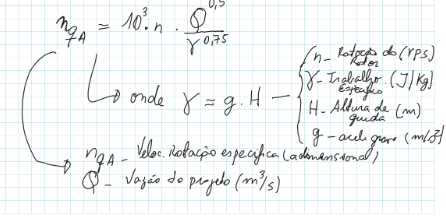 n_qA = 10³. n . Q^0,5 / Y^0,75
onde Y = g . H
n - Rotação do Rotor (rps)
Y - Trabalho específico (J/kg)
H - Altura de queda (m)
g - acel. grav (m/s²)
n_qA - Veloc. Rotação específica (adimensional)
Q - Vazão do projeto (m³/s)